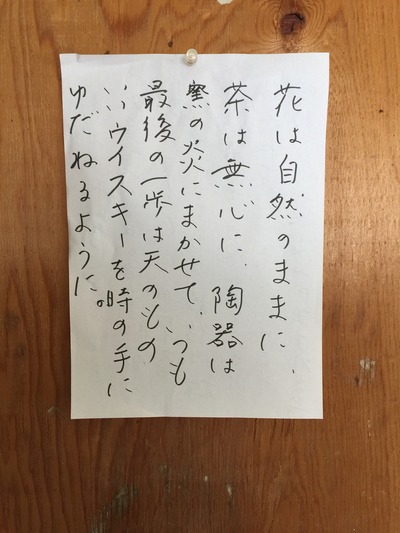 花は自然のままに、
茶は無心に、陶器は
窯の炎にまかせて、いつも
最後の一歩は天のもの
いいウイスキーを時の手に
ゆだねるように。